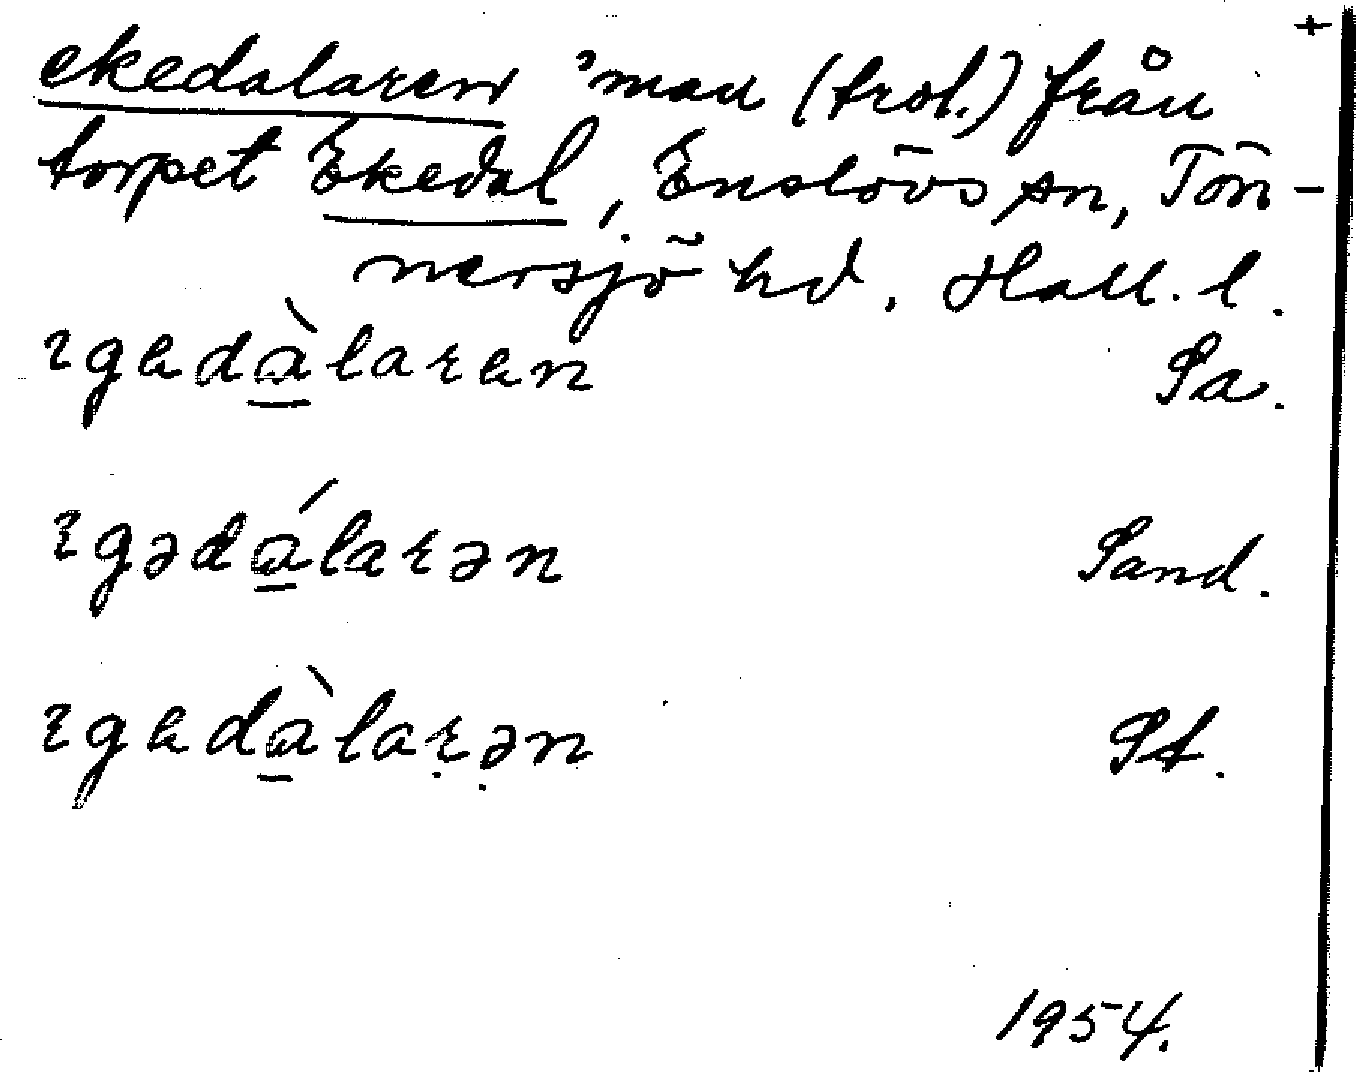 +
ekedalaren 'man (trol.) från
torpet Ekedal, Enslövs sn, Tön-
nersjö hd. Hall. l.
ɿgadàlaran Sa.
ɿgədálarən Sand.
ɿgadàlaṛə̣n St.
1954.